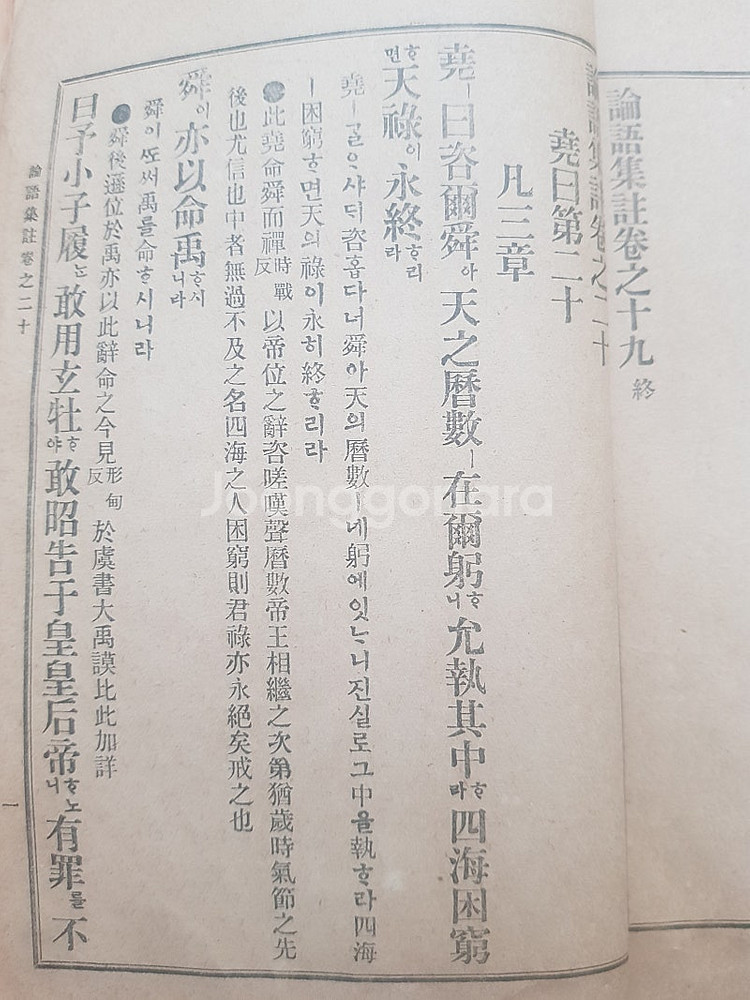 論語集註卷之十九 終
論語集註卷之二十
堯曰第二十
凡三章
堯ㅣ曰咨爾舜아天之曆數ㅣ在爾躬ᄒᆞ니允執其中ᄒᆞ라四海困窮
ᄒᆞ면天祿이永終ᄒᆞ리라
堯ㅣᄀᆞᆯᄋᆞ샤ᄃᆡ咨홉다너舜아天의曆數ㅣ네躬에잇ᄂᆞ니진실로그中을執ᄒᆞ라四海
ㅣ困窮ᄒᆞ면天의祿이永히終ᄒᆞ리라
●此堯命舜而禪時戰反以帝位之辭咨嗟嘆聲曆數帝王相繼之次第猶歲時氣節之先
後也允信也中者無過不及之名四海之人困窮則君祿亦永絕矣戒之也
舜이亦以命禹ᄒᆞ시니라
舜이ᄯᅩ써禹를命ᄒᆞ시니라
●舜後遜位於禹亦以此辭命之今見形甸反於虞書大禹謨比此加詳
曰予小子履ᄂᆞᆫ敢用玄牡ᄒᆞ야敢昭告于皇皇后帝ᄒᆞ노니有罪를不
論語集註卷之二十
一
Joonggonara